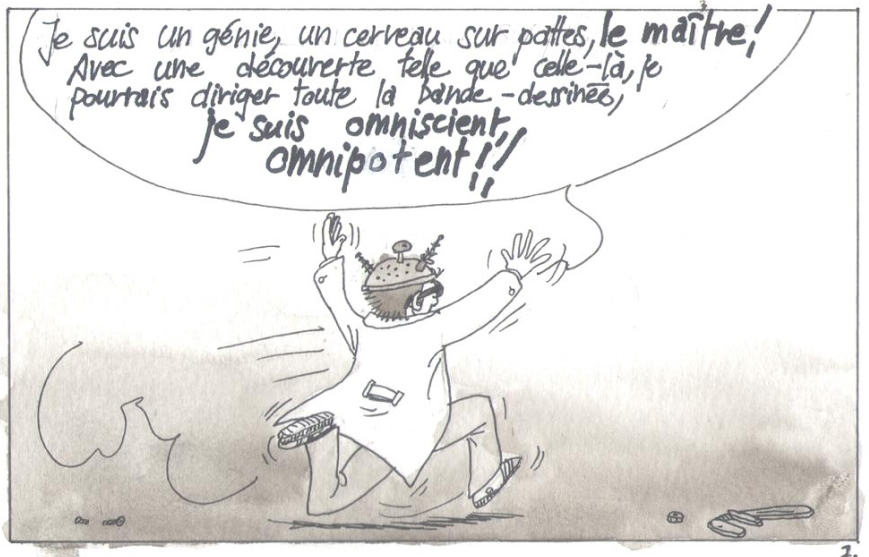 Je suis un génie, un cerveau sur pattes, le maître!
Avec une découverte telle que celle-là, je
pourrais diriger toute la bande-dessinée,
je suis omniscient,
omnipotent!!
2.